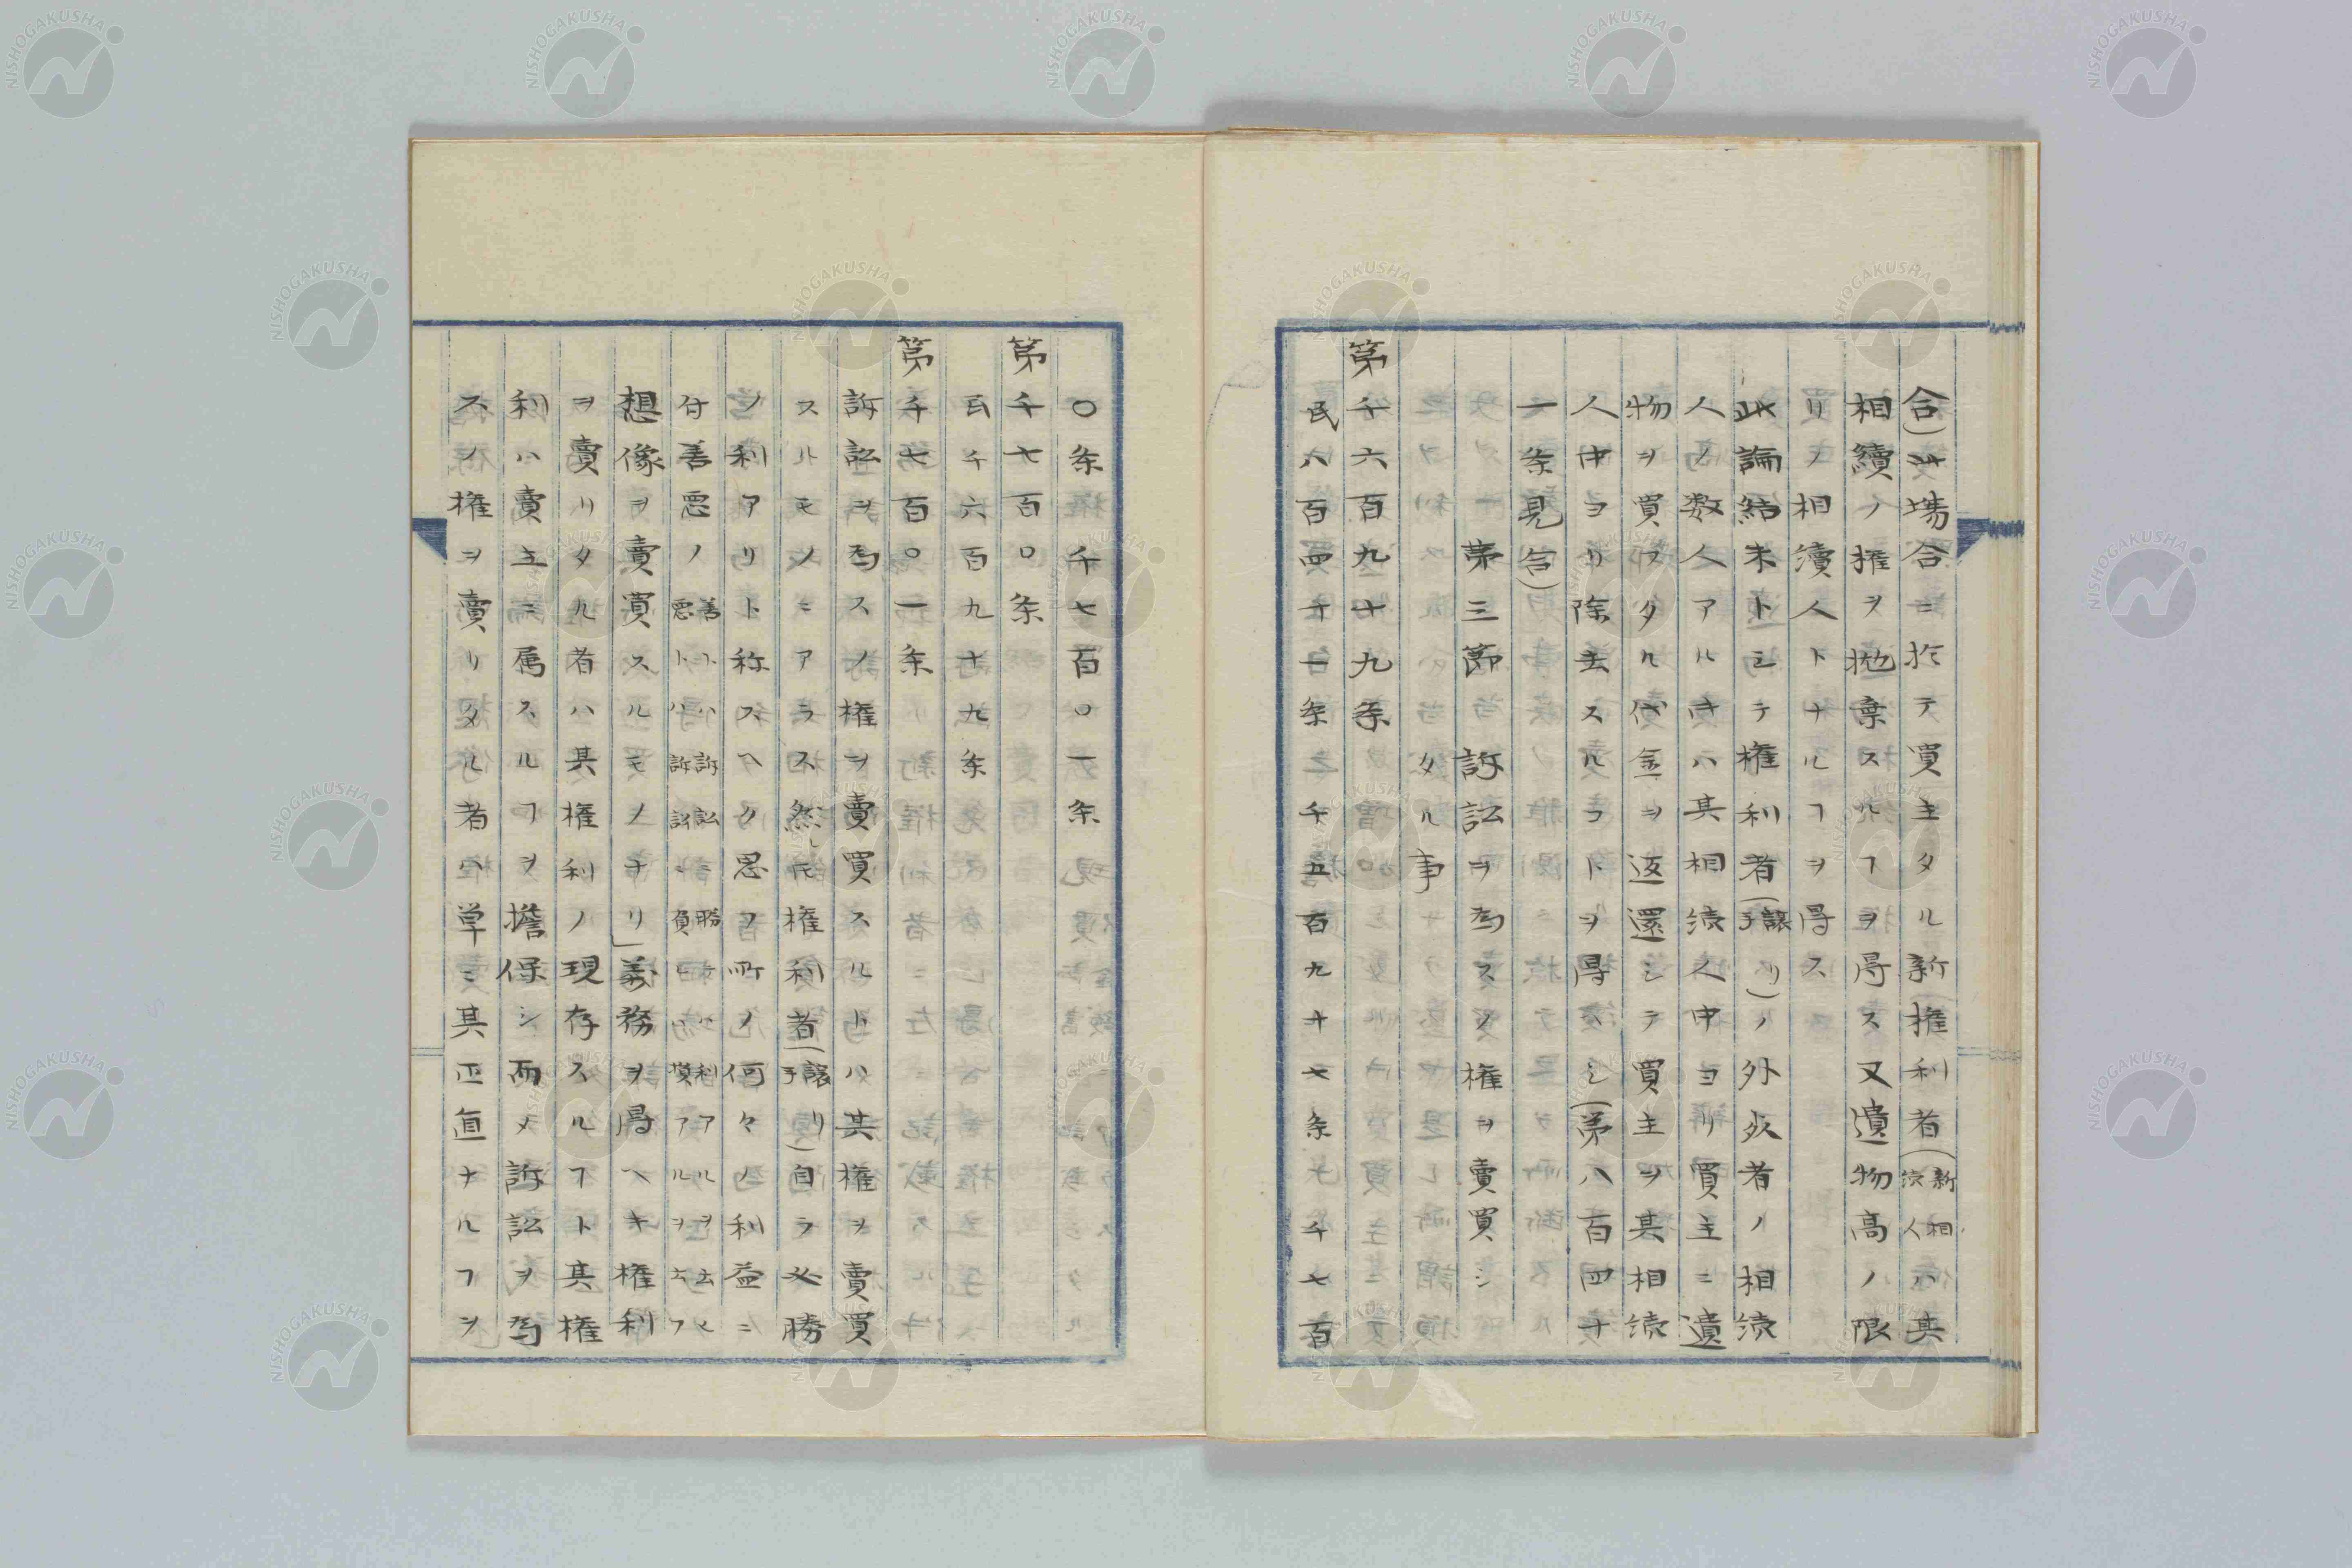 合)此場合ニ於テ買主タル新権利者(新相続人ハ其
相續ノ権ヲ抛棄スルヿヲ得ス又遺物高ノ限
リノ相續人トナルヿヲ得ス
此論結末トシテ権利者(譲リ手)ノ外死者ノ相続
人ノ数人アルキハ其相続人中ヨリ買主ニ遺
物ヲ買フタル代金ヲ返還シテ買主ヲ其相続
人中ヨリ除去スルヿヲ得ヘシ(第八百四十
一条見合)
第三節 訴訟ヲ為スノ権ヲ賣買シ
タル事
第千六百九十九条
民八百四十一条千五百九十七条千七百
〇条千七百〇一条
第千七百〇条
民千六百九十九条
第千七百〇一条
訴訟ヲ為スノ権ヲ賣買スルトハ其権ヲ賣買
スルモノニアラス然レ𪜈権利者(譲リ手)自ラ必勝
ノ利アリト称スヘク思フ所ノ何々ノ利益ニ
付善悪ノ善トハ訴訟ニ勝テハ利アルヲ云ヒ悪トハ訴訟ニ負レハ損アルヲ云フ
想像ヲ賣買スルモノナリ」義務ヲ得ヘキ権利
ヲ賣リタル者ハ其権利ノ現存スルヿト其権
利ハ賣主ニ属スルヿヲ擔保シ而メ訴訟ヲ為
スノ権ヲ賣リタル者ハ単ニ其正直ナルヿヲ